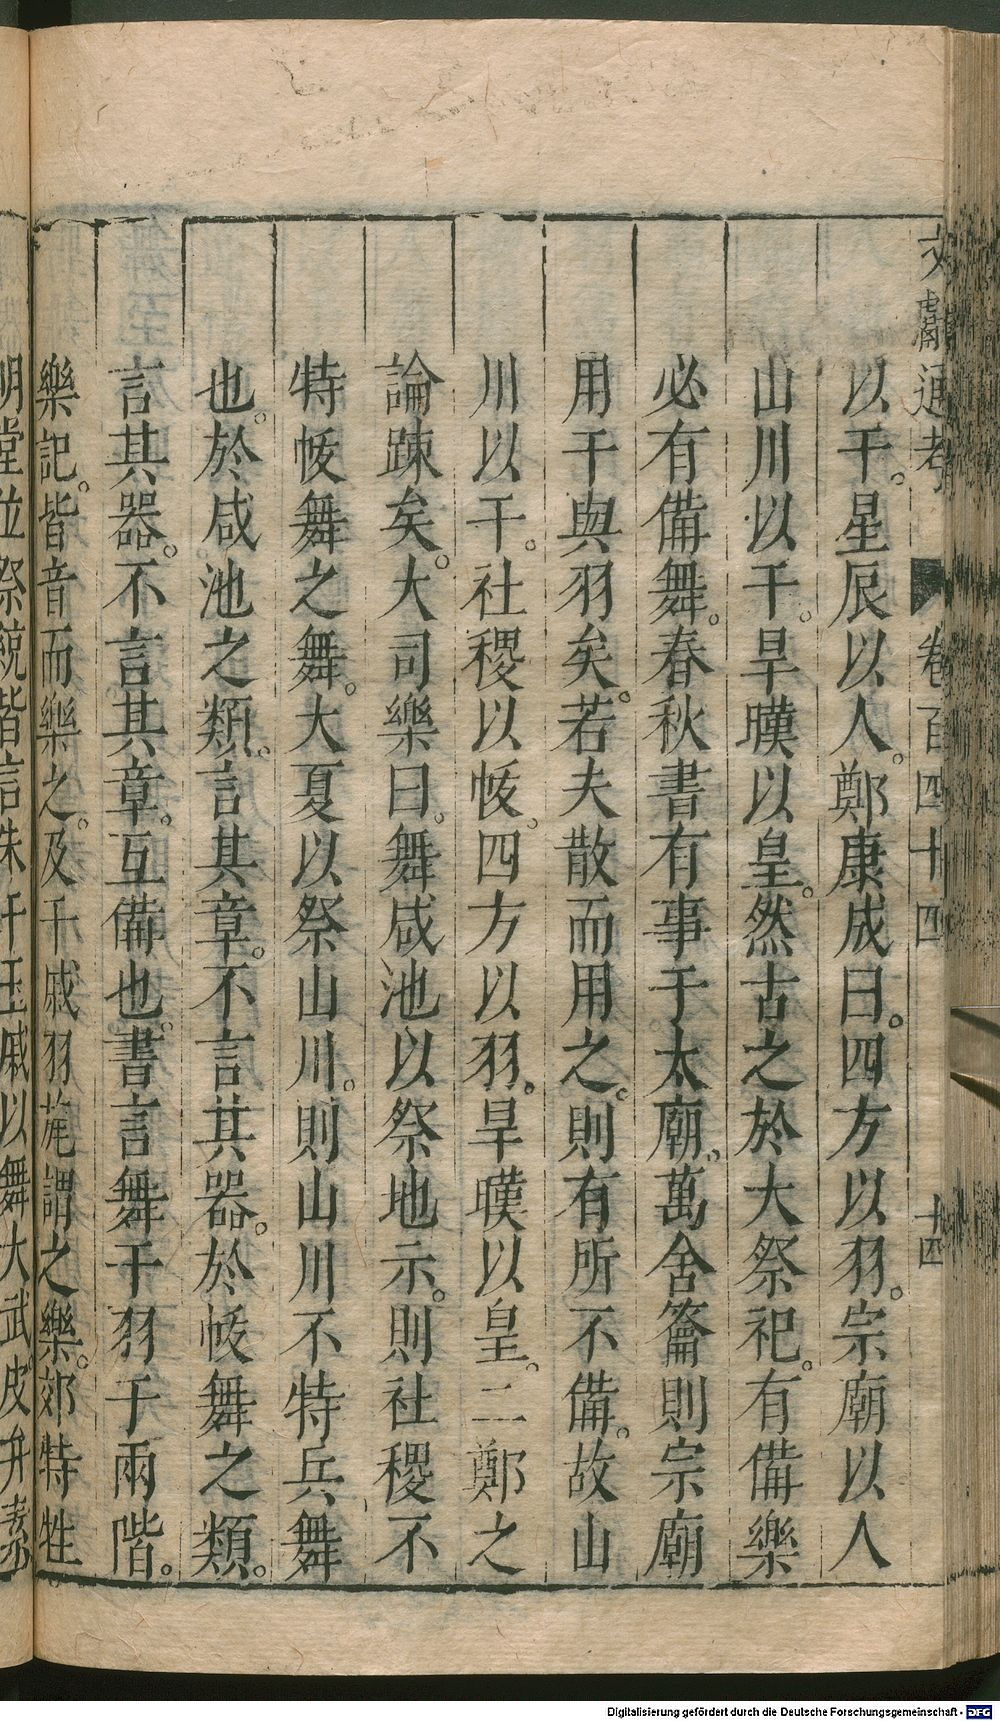 文獻通考 卷百四十四 十四
以干。星辰以人。鄭康成曰。四方以羽。宗廟以人
山川以干。旱暵以皇。然古之於大祭祀。有備樂
必有備舞。春秋書有事于太廟。萬舍籥則宗廟
用干與羽矣。若夫散而用之。則有所不備。故山
川以干。社稷以帗。四方以羽。旱暵以皇。二鄭之
論踈矣。大司樂曰。舞咸池以祭地示。則社稷不
特帗舞之舞。大夏以祭山川。則山川不特兵舞
也。於咸池之類。言其章。不言其器。於帗舞之類。
言其器。不言其章。互備也。書言舞干羽于兩階。
樂記。皆音而樂之。及干戚羽旄謂之樂。郊特牲
明堂位祭統皆言朱干玉戚以舞大武。皮弁素
Digitalisierung gefördert durch die Deutsche Forschungsgemeinschaft - DFG